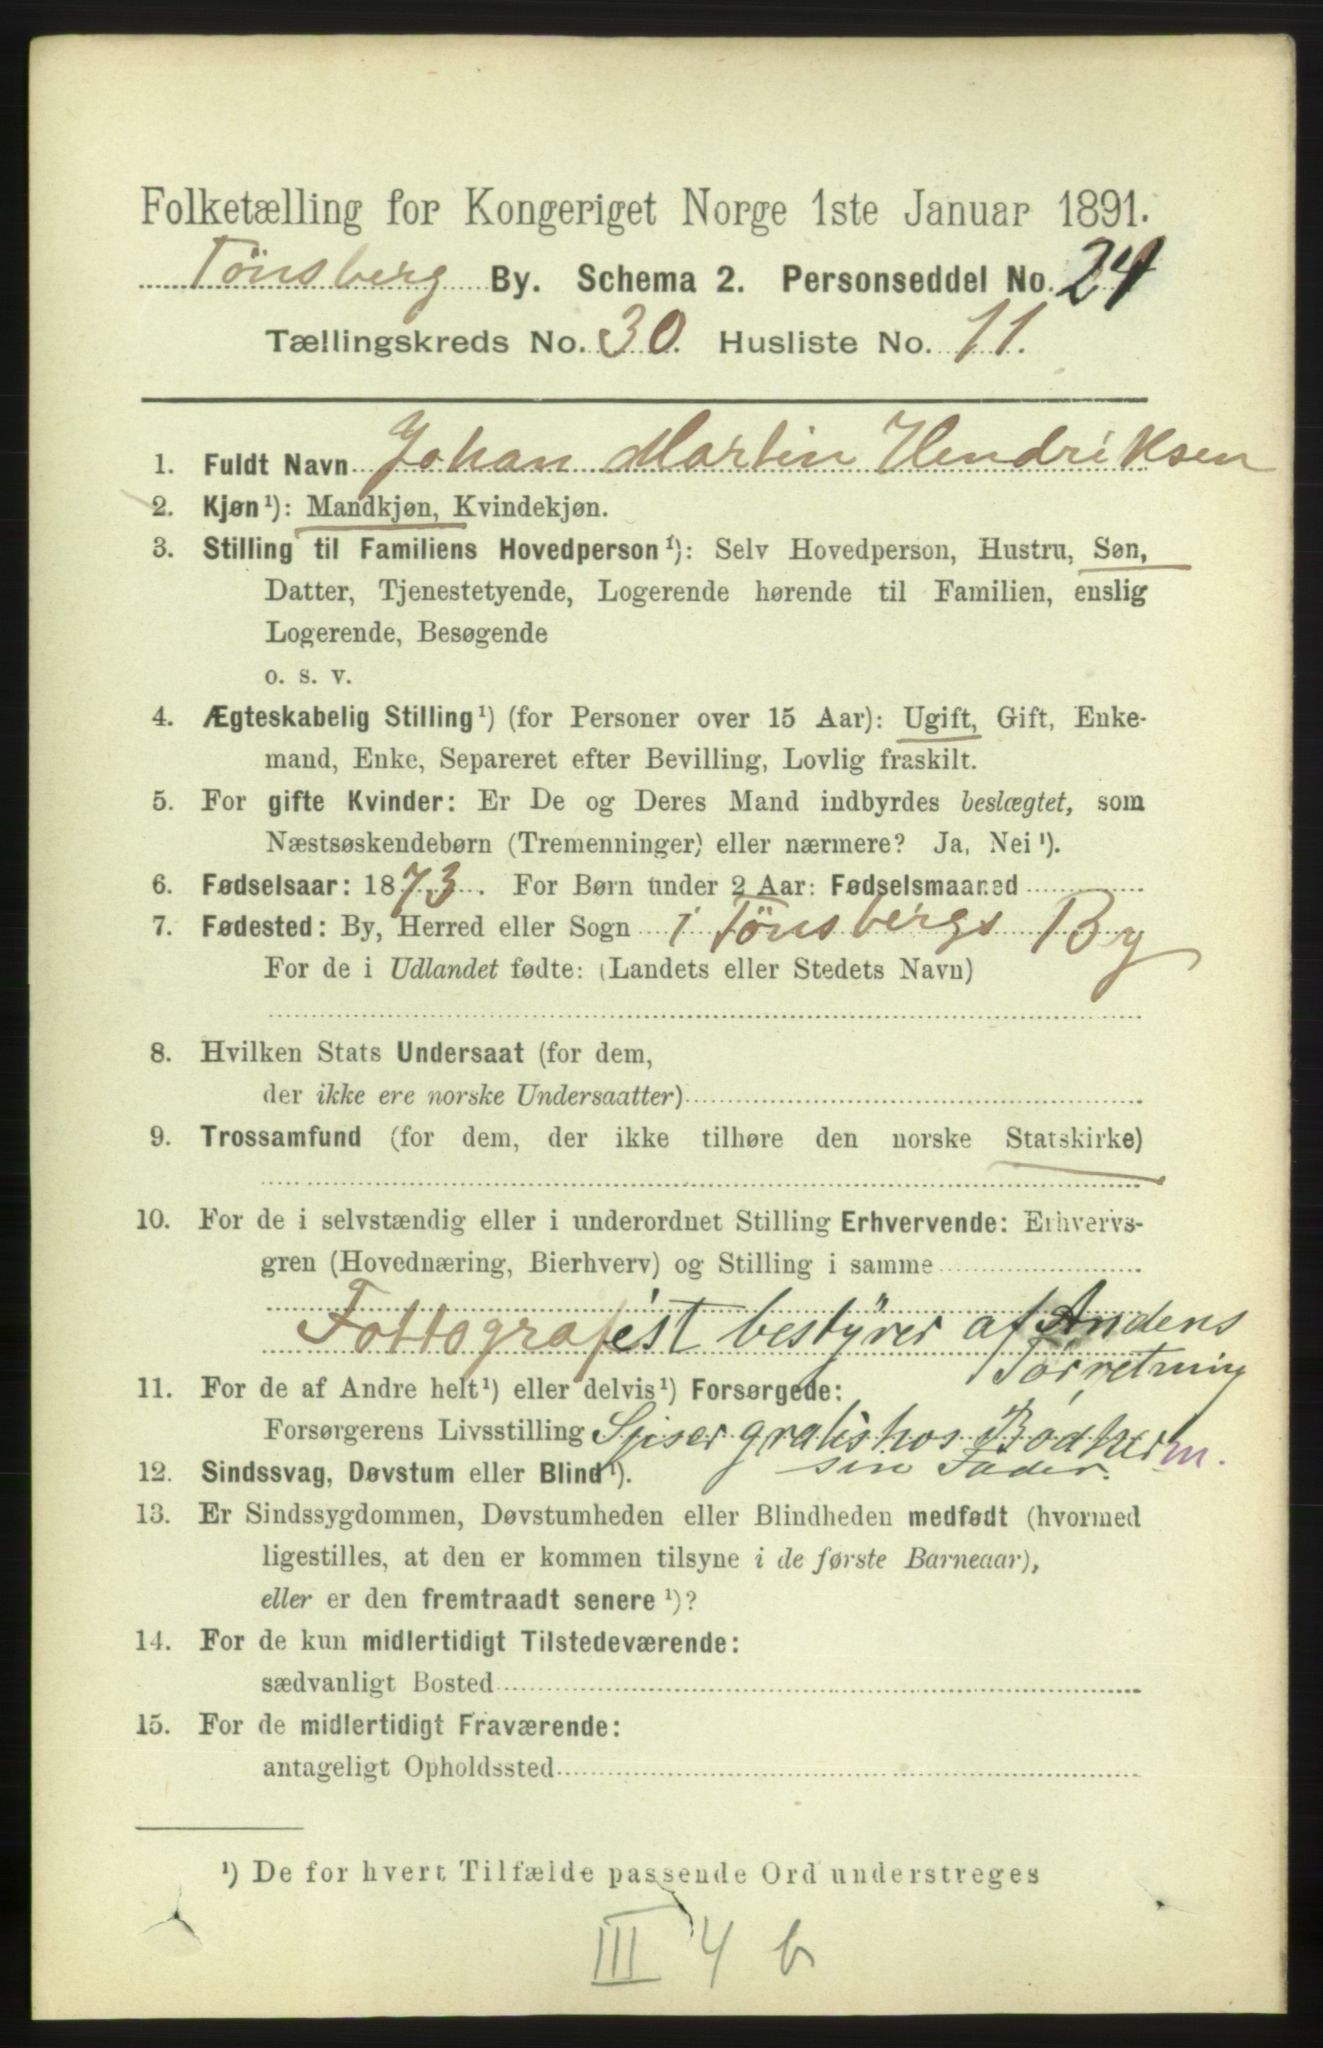 Folketælling for Kongeriget Norge 1ste Januar 1891.
Tönsberg By. Schema 2. Personseddel No. 24
Tællingskreds No. 30. Husliste No. 11.
1. Fuldt Navn Johan Martin Hendriksen
2. Kjøn¹): Mandkjøn, Kvindekjøn.
3. Stilling til Familiens Hovedperson¹): Selv Hovedperson, Hustru, Søn,
Datter, Tjenestetyende, Logerende hørende til Familien, enslig
Logerende, Besøgende
o. s. v.
4. Ægteskabelig Stilling¹) (for Personer over 15 Aar): Ugift, Gift, Enke-
mand, Enke, Separeret efter Bevilling, Lovlig fraskilt.
5. For gifte Kvinder: Er De og Deres Mand indbyrdes beslægtet, som
Næstsøskendebørn (Tremenninger) eller nærmere? Ja, Nei¹).
6. Fødselsaar: 1873. For Børn under 2 Aar: Fødselsmaaned
7. Fødested: By, Herred eller Sogn i Tönsbergs By
For de i Udlandet fødte: (Landets eller Stedets Navn)
8. Hvilken Stats Undersaat (for dem,
der ikke ere norske Undersaatter)
9. Trossamfund (for dem, der ikke tilhøre den norske Statskirke)
10. For de i selvstændig eller i underordnet Stilling Erhvervende: Erhvervs-
gren (Hovednæring, Bierhverv) og Stilling i samme
Fottografist bestÿrer af Andens
Forretning
11. For de af Andre helt¹) eller delvis¹) Forsørgede:
Forsørgerens Livsstilling Spiser gratis hos
sin Fader.
12. Sindssvag, Døvstum eller Blind¹).
13. Er Sindssygdommen, Døvstumheden eller Blindheden medfødt (hvormed
ligestilles, at den er kommen tilsyne i de første Barneaar),
eller er den fremtraadt senere¹)?
14. For de kun midlertidigt Tilstedeværende:
sædvanligt Bosted
15. For de midlertidigt Fraværende:
antageligt Opholdssted
¹) De for hvert Tilfælde passende Ord understreges
III 4 b